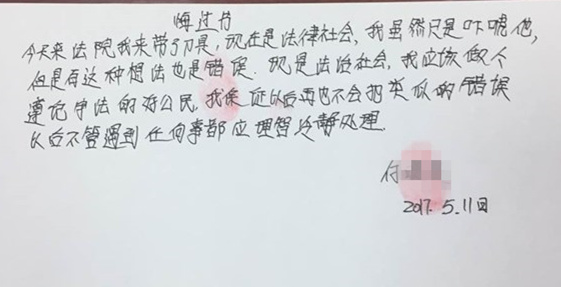 悔过书
今天来法院我来带了刀具,现在是法律社会,我虽然只是吓唬他,
但是有这种想法也是错误.现是法治社会,我应该做个
遵记守法的好公民.我保证以后再也不会犯类似的错误
以后不管遇到任何事都应理智冷静处理.
付
2017.5.11日